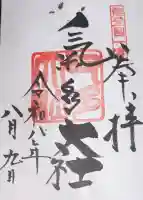 奉拝
氣多大社
令和八年
八月九日